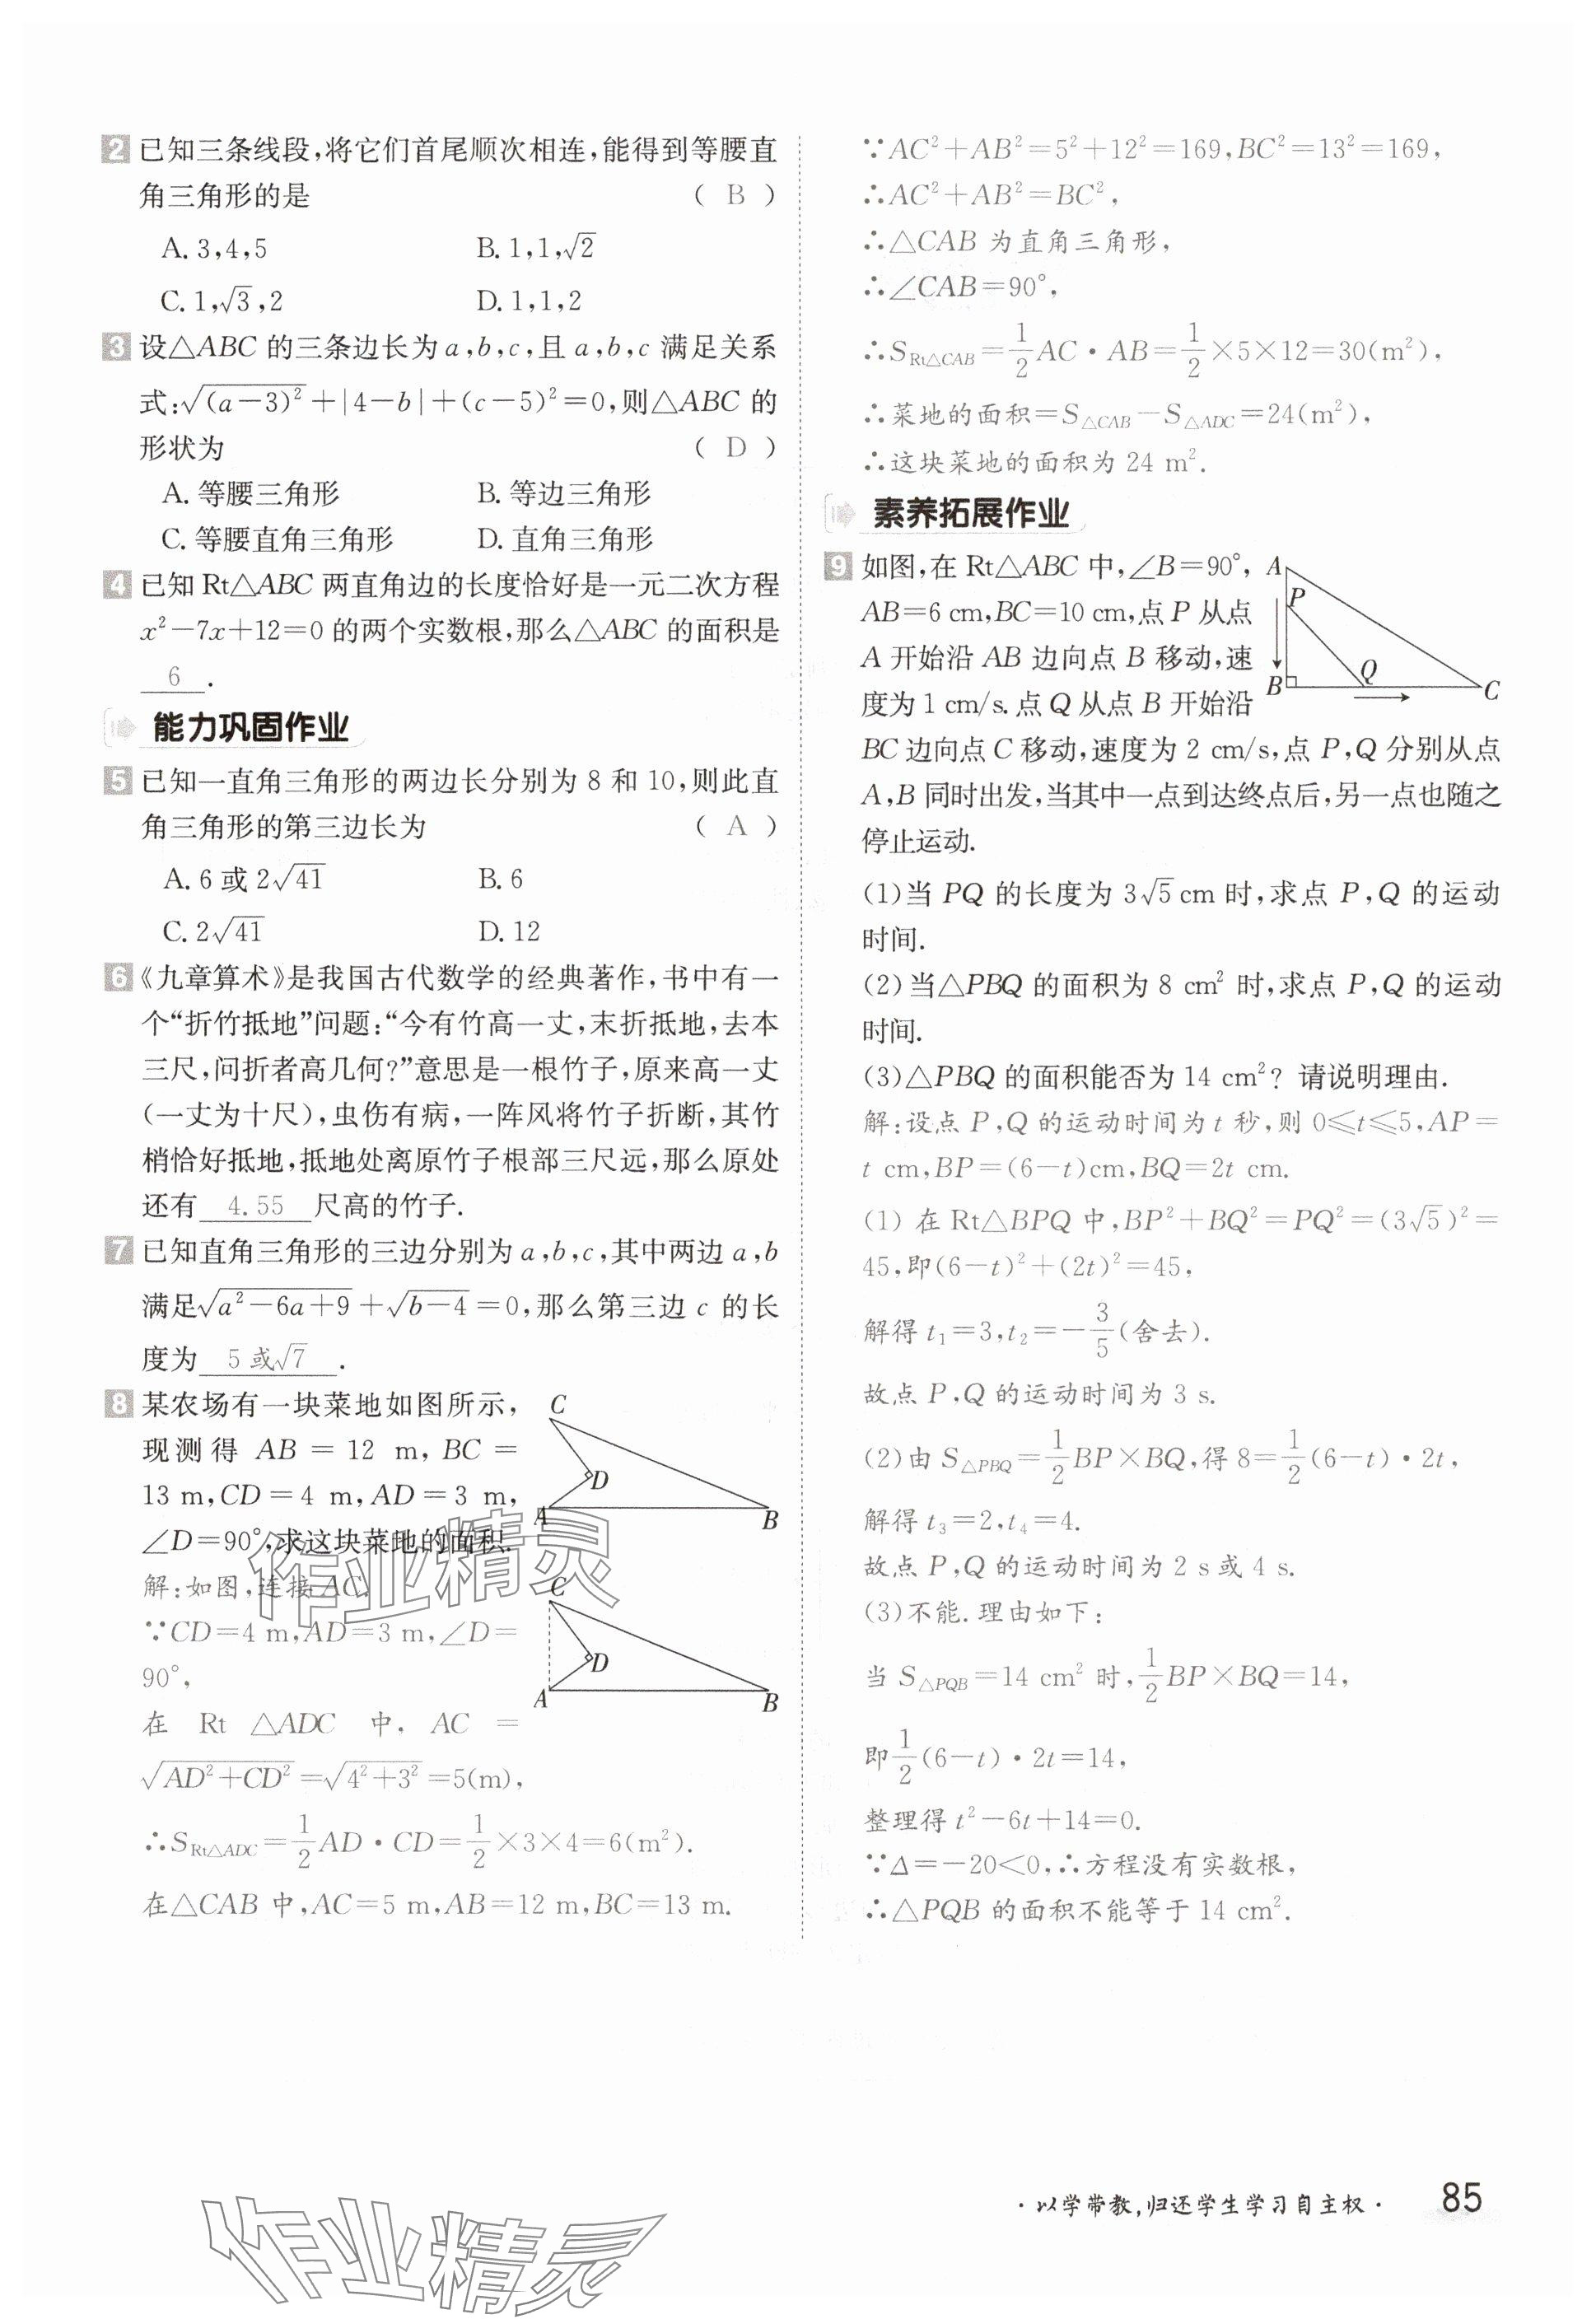 2 已知三条线段,将它们首尾顺次相连,能得到等腰直
角三角形的是 ( B )
A. 3,4,5 B. 1,1,√2
C. 1,√3,2 D. 1,1,2
3 设△ABC 的三条边长为 a,b,c,且 a,b,c 满足关系
式:√(a-3)² +|4-b|+(c-5)²=0,则△ABC 的
形状为 ( D )
A. 等腰三角形 B. 等边三角形
C. 等腰直角三角形 D. 直角三角形
4 已知 Rt△ABC 两直角边的长度恰好是一元二次方程
x²-7x+12=0 的两个实数根,那么△ABC 的面积是
6 .
能力巩固作业
5 已知一直角三角形的两边长分别为 8 和 10,则此直
角三角形的第三边长为 ( A )
A. 6 或 2√41 B. 6
C. 2√41 D. 12
6 《九章算术》是我国古代数学的经典著作,书中有一
个“折竹抵地”问题:“今有竹高一丈,末折抵地,去本
三尺,问折者高几何?”意思是一根竹子,原来高一丈
(一丈为十尺),虫伤有病,一阵风将竹子折断,其竹
梢恰好抵地,抵地处离原竹子根部三尺远,那么原处
还有 4.55 尺高的竹子.
7 已知直角三角形的三边分别为 a,b,c,其中两边 a,b
满足√(a²-6a+9) +√(b-4) =0,那么第三边 c 的长
度为 5 或√7 .
8 某农场有一块菜地如图所示,
现测得 AB = 12 m, BC =
13 m,CD=4 m,AD=3 m,
∠D=90°,求这块菜地的面积.
C
D
A
B
解:如图,连接 AC.
∵CD=4 m,AD=3 m,∠D=
90°,
C
D
A
B
在 Rt △ADC 中, AC =
√(AD²+CD²) =√(4²+3²) =5(m),
∴S Rt△ADC = 1/2 AD·CD= 1/2 ×3×4=6(m²).
在△CAB 中,AC=5 m,AB=12 m,BC=13 m.
∵AC²+AB²=5²+12²=169,BC²=13²=169,
∴AC²+AB²=BC²,
∴△CAB 为直角三角形,
∴∠CAB=90°,
∴S Rt△CAB = 1/2 AC·AB= 1/2 ×5×12=30(m²),
∴菜地的面积=S△CAB-S△ADC=24(m²),
∴这块菜地的面积为 24 m².
素养拓展作业
9 如图,在 Rt△ABC 中,∠B=90°,
AB=6 cm,BC=10 cm,点 P 从点
A 开始沿 AB 边向点 B 移动,速
度为 1 cm/s. 点 Q 从点 B 开始沿
A
P
B
Q
C
BC 边向点 C 移动,速度为 2 cm/s,点 P,Q 分别从点
A,B 同时出发,当其中一点到达终点后,另一点也随之
停止运动.
(1)当 PQ 的长度为 3√5 cm 时,求点 P,Q 的运动
时间.
(2)当△PBQ 的面积为 8 cm² 时,求点 P,Q 的运动
时间.
(3)△PBQ 的面积能否为 14 cm²? 请说明理由.
解:设点 P,Q 的运动时间为 t 秒,则 0≤t≤5,AP=
t cm,BP=(6-t)cm,BQ=2t cm.
(1) 在 Rt△BPQ 中,BP²+BQ²=PQ²=(3√5)²=
45,即(6-t)²+(2t)²=45,
解得 t₁=3,t₂=-3/5(舍去).
故点 P,Q 的运动时间为 3 s.
(2)由 S△PBQ= 1/2 BP×BQ,得 8= 1/2 (6-t)·2t,
解得 t₃=2,t₄=4.
故点 P,Q 的运动时间为 2 s 或 4 s.
(3)不能.理由如下:
当 S△PQB=14 cm² 时, 1/2 BP×BQ=14,
即 1/2 (6-t)·2t=14,
整理得 t²-6t+14=0.
∵Δ=-20<0,∴方程没有实数根,
∴△PQB 的面积不能等于 14 cm².
作业精灵
作业精灵
·以学带教,归还学生学习自主权· 85